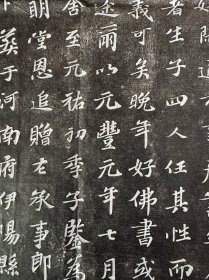 者生子四人任其性而
義可矣晚年好佛書或
遠爾以元豐元年七月
舟至元祐初季子鑒為
明堂恩追贈右承事郎
葬于河南府伊陽縣